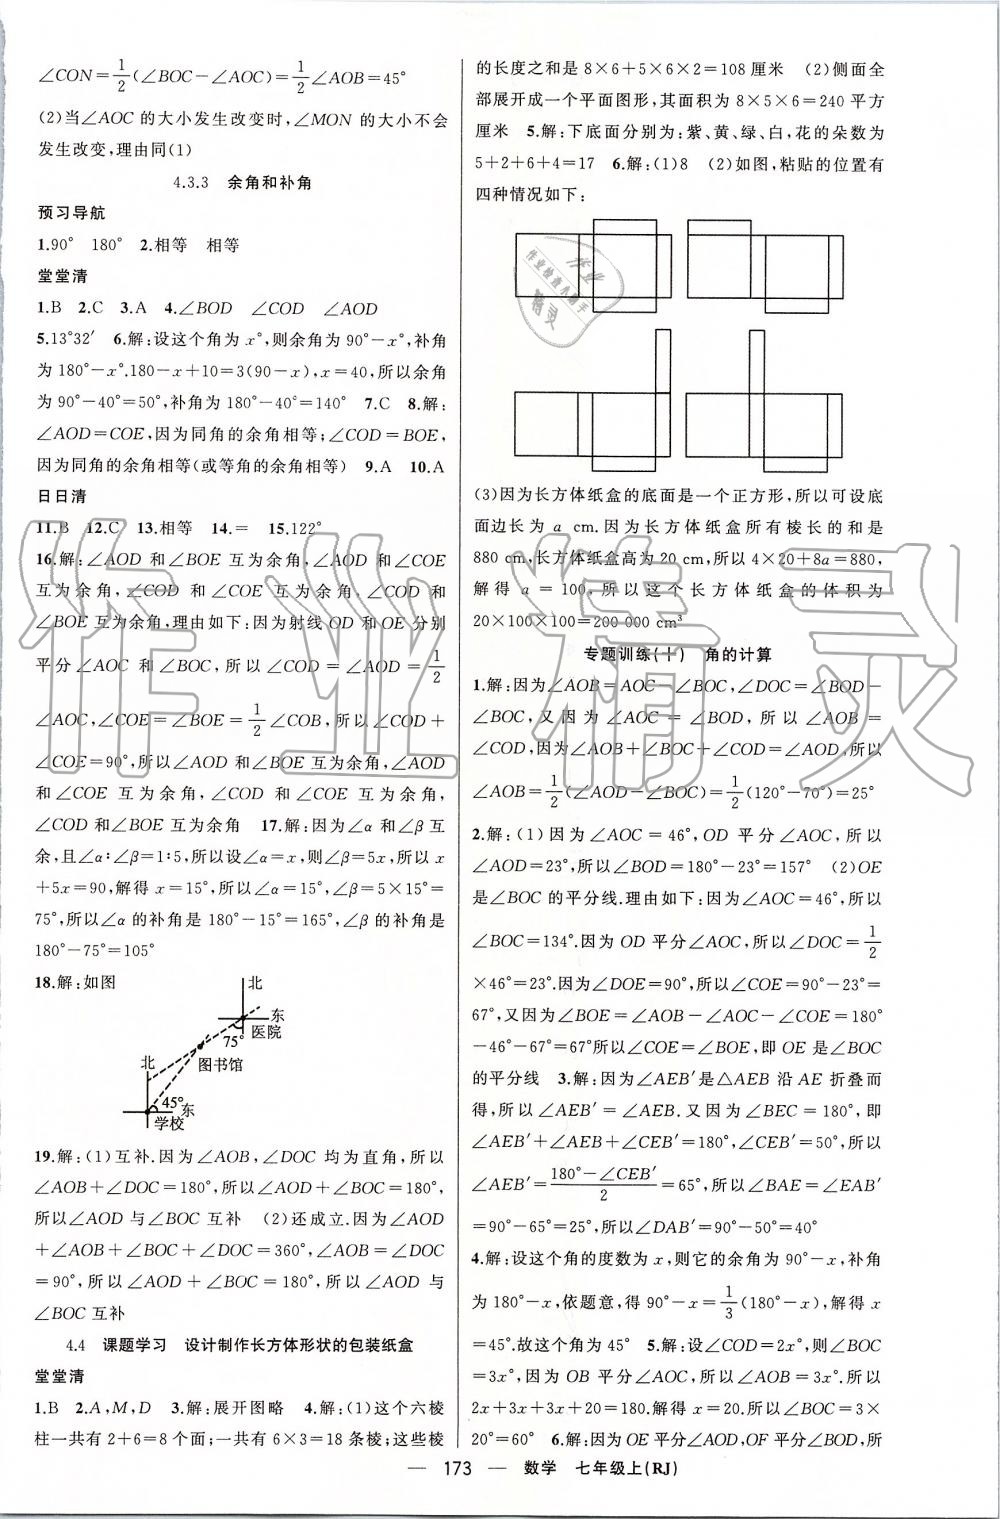 ∠CON=1/2(∠BOC-∠AOC)=1/2∠AOB=45°
(2)当∠AOC 的大小发生改变时,∠MON 的大小不会
发生改变,理由同(1)
4.3.3 余角和补角
预习导航
1.90° 180° 2.相等 相等
堂堂清
1.B 2.C 3.A 4.∠BOD ∠COD ∠AOD
5.13°32′ 6.解:设这个角为 x°,则余角为 90°-x°,补角
为 180°-x°.180-x+10=3(90-x),x=40,所以余角
为 90°-40°=50°,补角为 180°-40°=140° 7.C 8.解:
∠AOD=COE,因为同角的余角相等;∠COD=BOE,
因为同角的余角相等(或等角的余角相等) 9.A 10.A
日日清
11.B 12.C 13.相等 14.= 15.122°
16.解:∠AOD 和∠BOE 互为余角,∠AOD 和∠COE
互为余角,∠COD 和∠COE 互为余角,∠COD 和
∠BOE 互为余角,理由如下:因为射线 OD 和 OE 分别
平分∠AOC 和∠BOC,所以∠COD=∠AOD=1/2
∠AOC,∠COE=∠BOE=1/2∠COB,所以∠COD+
∠COE=90°,所以∠AOD 和∠BOE 互为余角,∠AOD
和∠COE 互为余角,∠COD 和∠COE 互为余角,
∠COD 和∠BOE 互为余角 17.解:因为∠α 和∠β 互
余,且∠α∶∠β=1∶5,所以设∠α=x,则∠β=5x,所以 x
+5x=90,解得 x=15°,所以∠α=15°,∠β=5×15°=
75°,所以∠α 的补角是 180°-15°=165°,∠β 的补角是
180°-75°=105°
18.解:如图
北
东
75° 医院
图书馆
北
45° 东
学校
19.解:(1)互补.因为∠AOB,∠DOC 均为直角,所以
∠AOB+∠DOC=180°,所以∠AOD+∠BOC=180°,
所以∠AOD 与∠BOC 互补 (2)还成立.因为∠AOD
+∠AOB+∠BOC+∠DOC=360°,∠AOB=∠DOC
=90°,所以∠AOD+∠BOC=180°,所以∠AOD 与
∠BOC 互补
4.4 课题学习 设计制作长方体形状的包装纸盒
堂堂清
1.B 2.A,M,D 3.解:展开图略 4.解:(1)这个六棱
柱一共有 2+6=8 个面;一共有 6×3=18 条棱;这些棱
的长度之和是 8×6+5×6×2=108 厘米 (2)侧面全
部展开成一个平面图形,其面积为 8×5×6=240 平方
厘米 5.解:下底面分别为:紫、黄、绿、白,花的朵数为
5+2+6+4=17 6.解:(1)8 (2)如图,粘贴的位置有
四种情况如下:
作业
作业检查小助手
精灵
(3)因为长方体纸盒的底面是一个正方形,所以可设底
面边长为 a cm.因为长方体纸盒所有棱长的和是
880 cm,长方体纸盒高为 20 cm,所以 4×20+8a=880,
解得 a=100,所以这个长方体纸盒的体积为
20×100×100=200 000 cm³
专题训练(十) 角的计算
1.解:因为∠AOB=AOC-∠BOC,∠DOC=∠BOD-
∠BOC,又因为∠AOC=∠BOD,所以∠AOB=
∠COD,因为∠AOB+∠BOC+∠COD=∠AOD,所以
∠AOB=1/2(∠AOD-∠BOC)=1/2(120°-70°)=25°
2.解:(1)因为∠AOC=46°,OD 平分∠AOC,所以
∠AOD=23°,所以∠BOD=180°-23°=157° (2)OE
是∠BOC 的平分线.理由如下:因为∠AOC=46°,所以
∠BOC=134°.因为 OD 平分∠AOC,所以∠DOC=1/2
×46°=23°.因为∠DOE=90°,所以∠COE=90°-23°=
67°,又因为∠BOE=∠AOB-∠AOC-∠COE=180°
-46°-67°=67°所以∠COE=∠BOE,即 OE 是∠BOC
的平分线 3.解:因为∠AEB′是△AEB 沿 AE 折叠而
得,所以∠AEB′=∠AEB.又因为∠BEC=180°,即
∠AEB′+∠AEB+∠CEB′=180°,∠CEB′=50°,所以
∠AEB′=(180°-∠CEB′)/2=65°,所以∠BAE=∠EAB′
=90°-65°=25°,所以∠DAB′=90°-50°=40°
4.解:设这个角的度数为 x,则它的余角为 90°-x,补角
为 180°-x,依题意,得 90°-x=1/3(180°-x),解得 x
=45°.故这个角为 45° 5.解:设∠COD=2x°,则∠BOC
=3x°,因为 OB 平分∠AOC,所以∠AOB=3x°.所以
2x+3x+3x+20=180.解得 x=20.所以∠BOC=3×
20°=60° 6.解:因为 OE 平分∠AOD,OF 平分∠BOF,所
— 173 — 数学 七年级上(RJ)
作业精灵